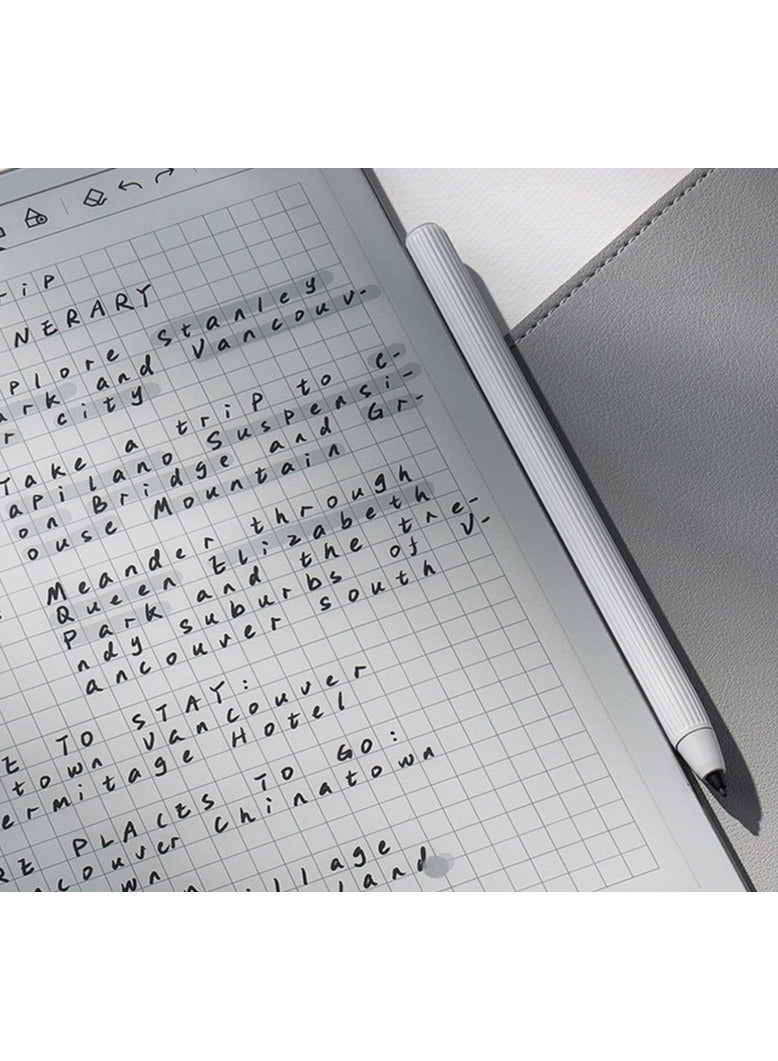 rip
NERARY
plore Stanley
ark and Vancouv-
r city
Take a trip to C-
apilano Suspensi-
on Bridge and Gr-
ouse Mountain
Meander through
Queen Elizabeth
Park and the tre-
ndy suburbs of V-
ancouver south
E TO STAY:
town Vancouver
ermitage Hotel
RE PLACES TO GO:
ncouver Chinatown
own
illage
land